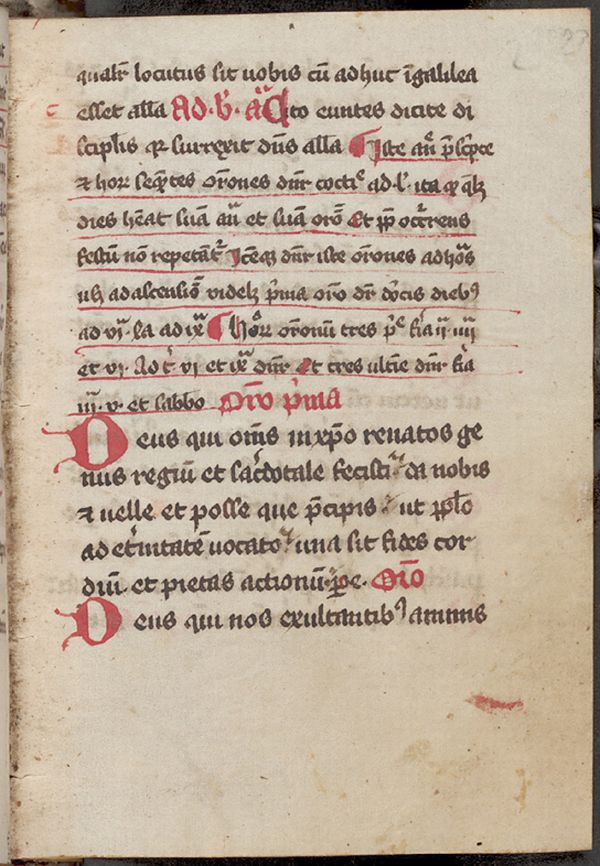 qualr̄ locutus sit uobis cū adhuc ī galilea
esset alla Ad · b̄ · añ Cito euntes dicite di
sciplis qr surrexit dn̄s alla Iste
et hor̄ seqn̄tes or̄ones dn̄r ad · l · ita qr
dies hēat suā añ et suā orō Et
festū nō repetāt̉ Itēqꝫ dn̄r iste or̄ones ad horās
usqꝫ ad ascensiō videlꝫ p̄ma orō dr̄ diebꝰ
ad vi · ad ix hor̄ or̄onū tres fr̄ia ii · iiii
et vi · Ad t̉ vi et ix dn̄r Et tres ultīe dn̄r fīa
iii · v · et sabbo Orō p̄ma
Deus qui om̄s in xp̄o renatos ge
nus regiū et sac̉dotale fecisti da nobis
et uelle et posse que p̄cipis ut pplo
ad et̉nitatē uocato una sit fides cor
diū · et pietas actionū · Orō
Deus qui nos exultantibꝰ animis